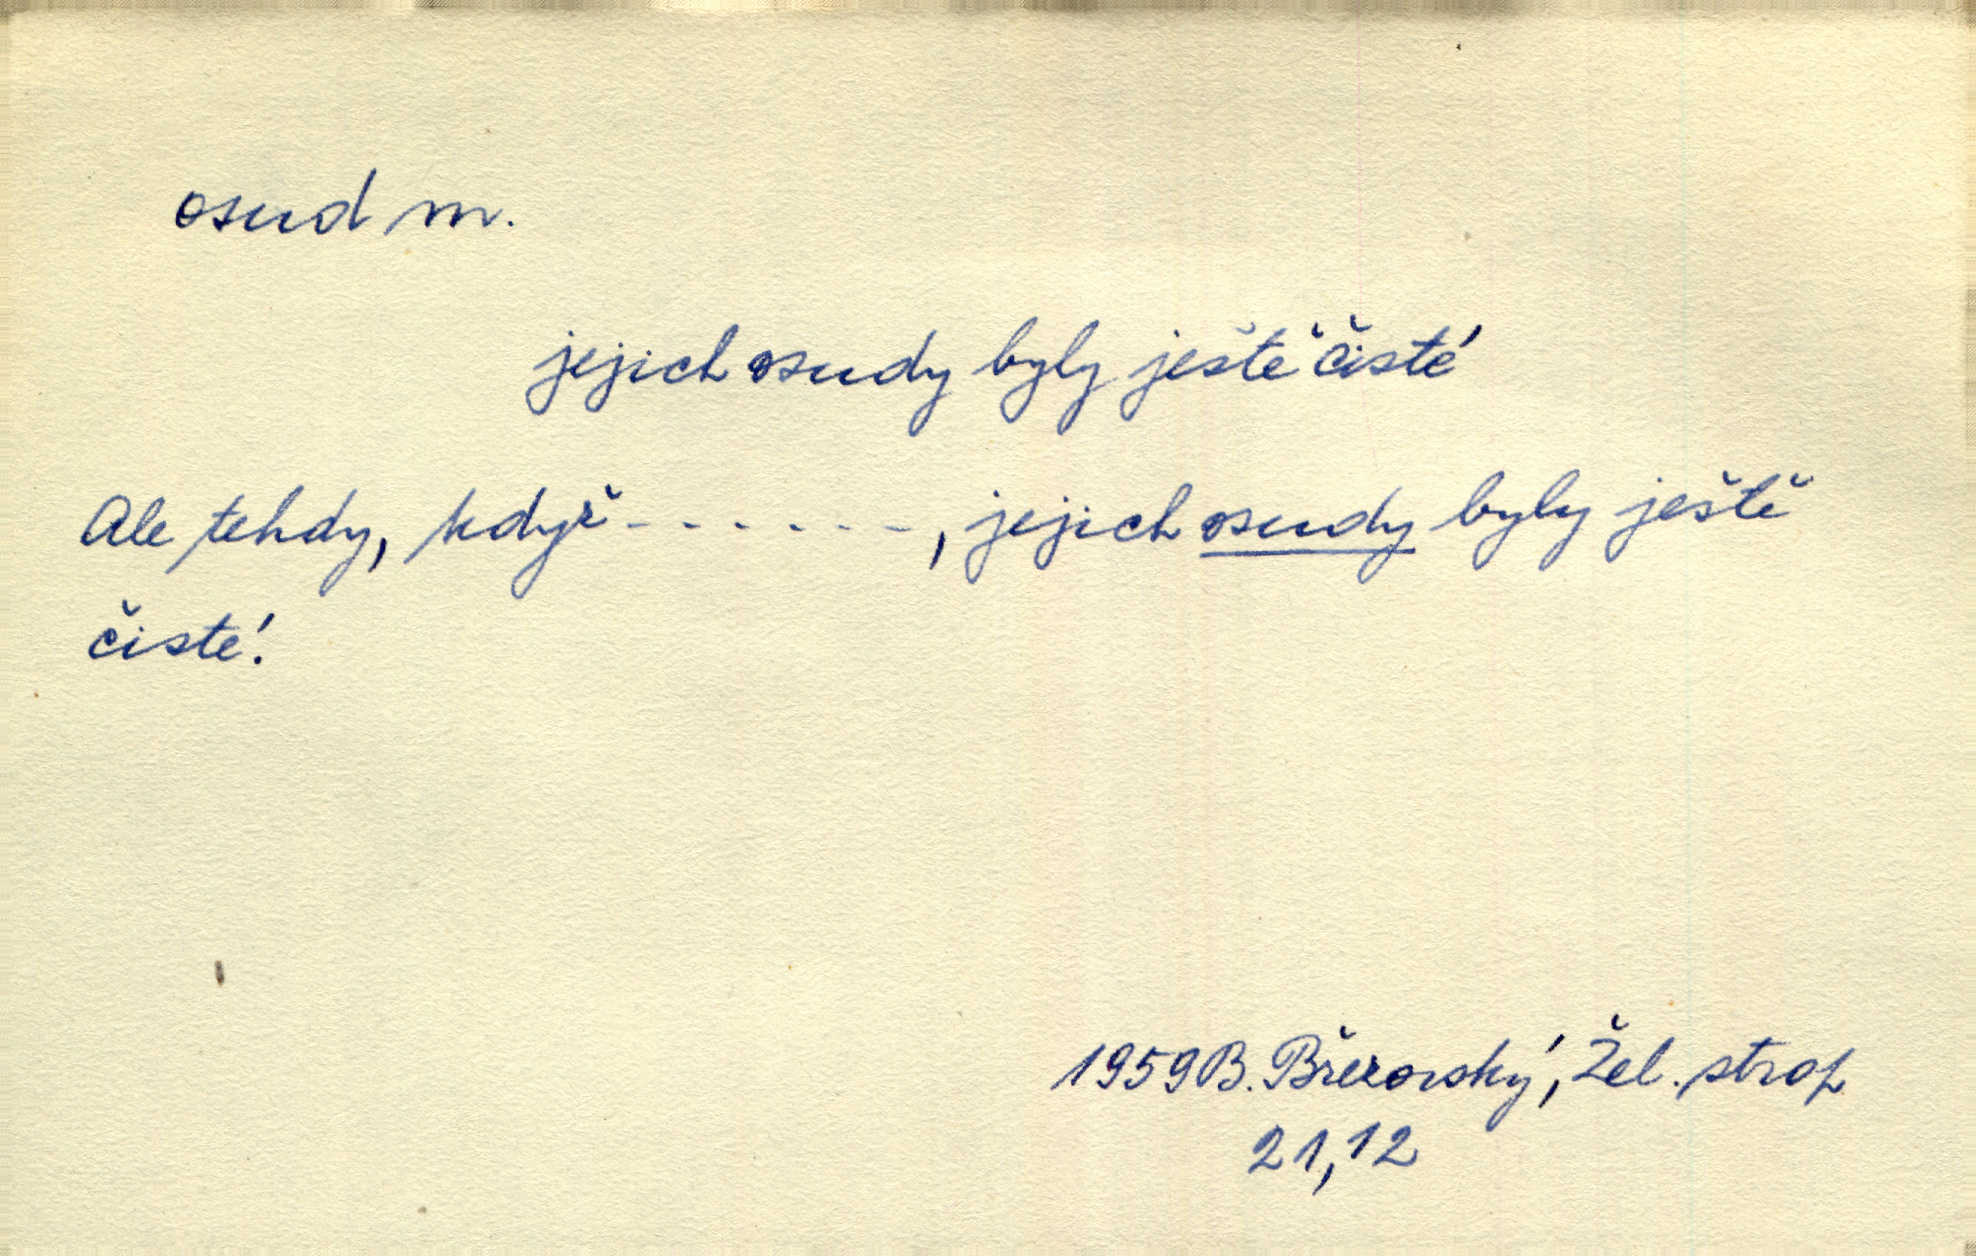 osud m.
jejich osudy byly ještě čisté
Ale tehdy, když - - - - - - -, jejich osudy byly ještě
čisté.
1959 B. Březovský, Žel. strop
21,12